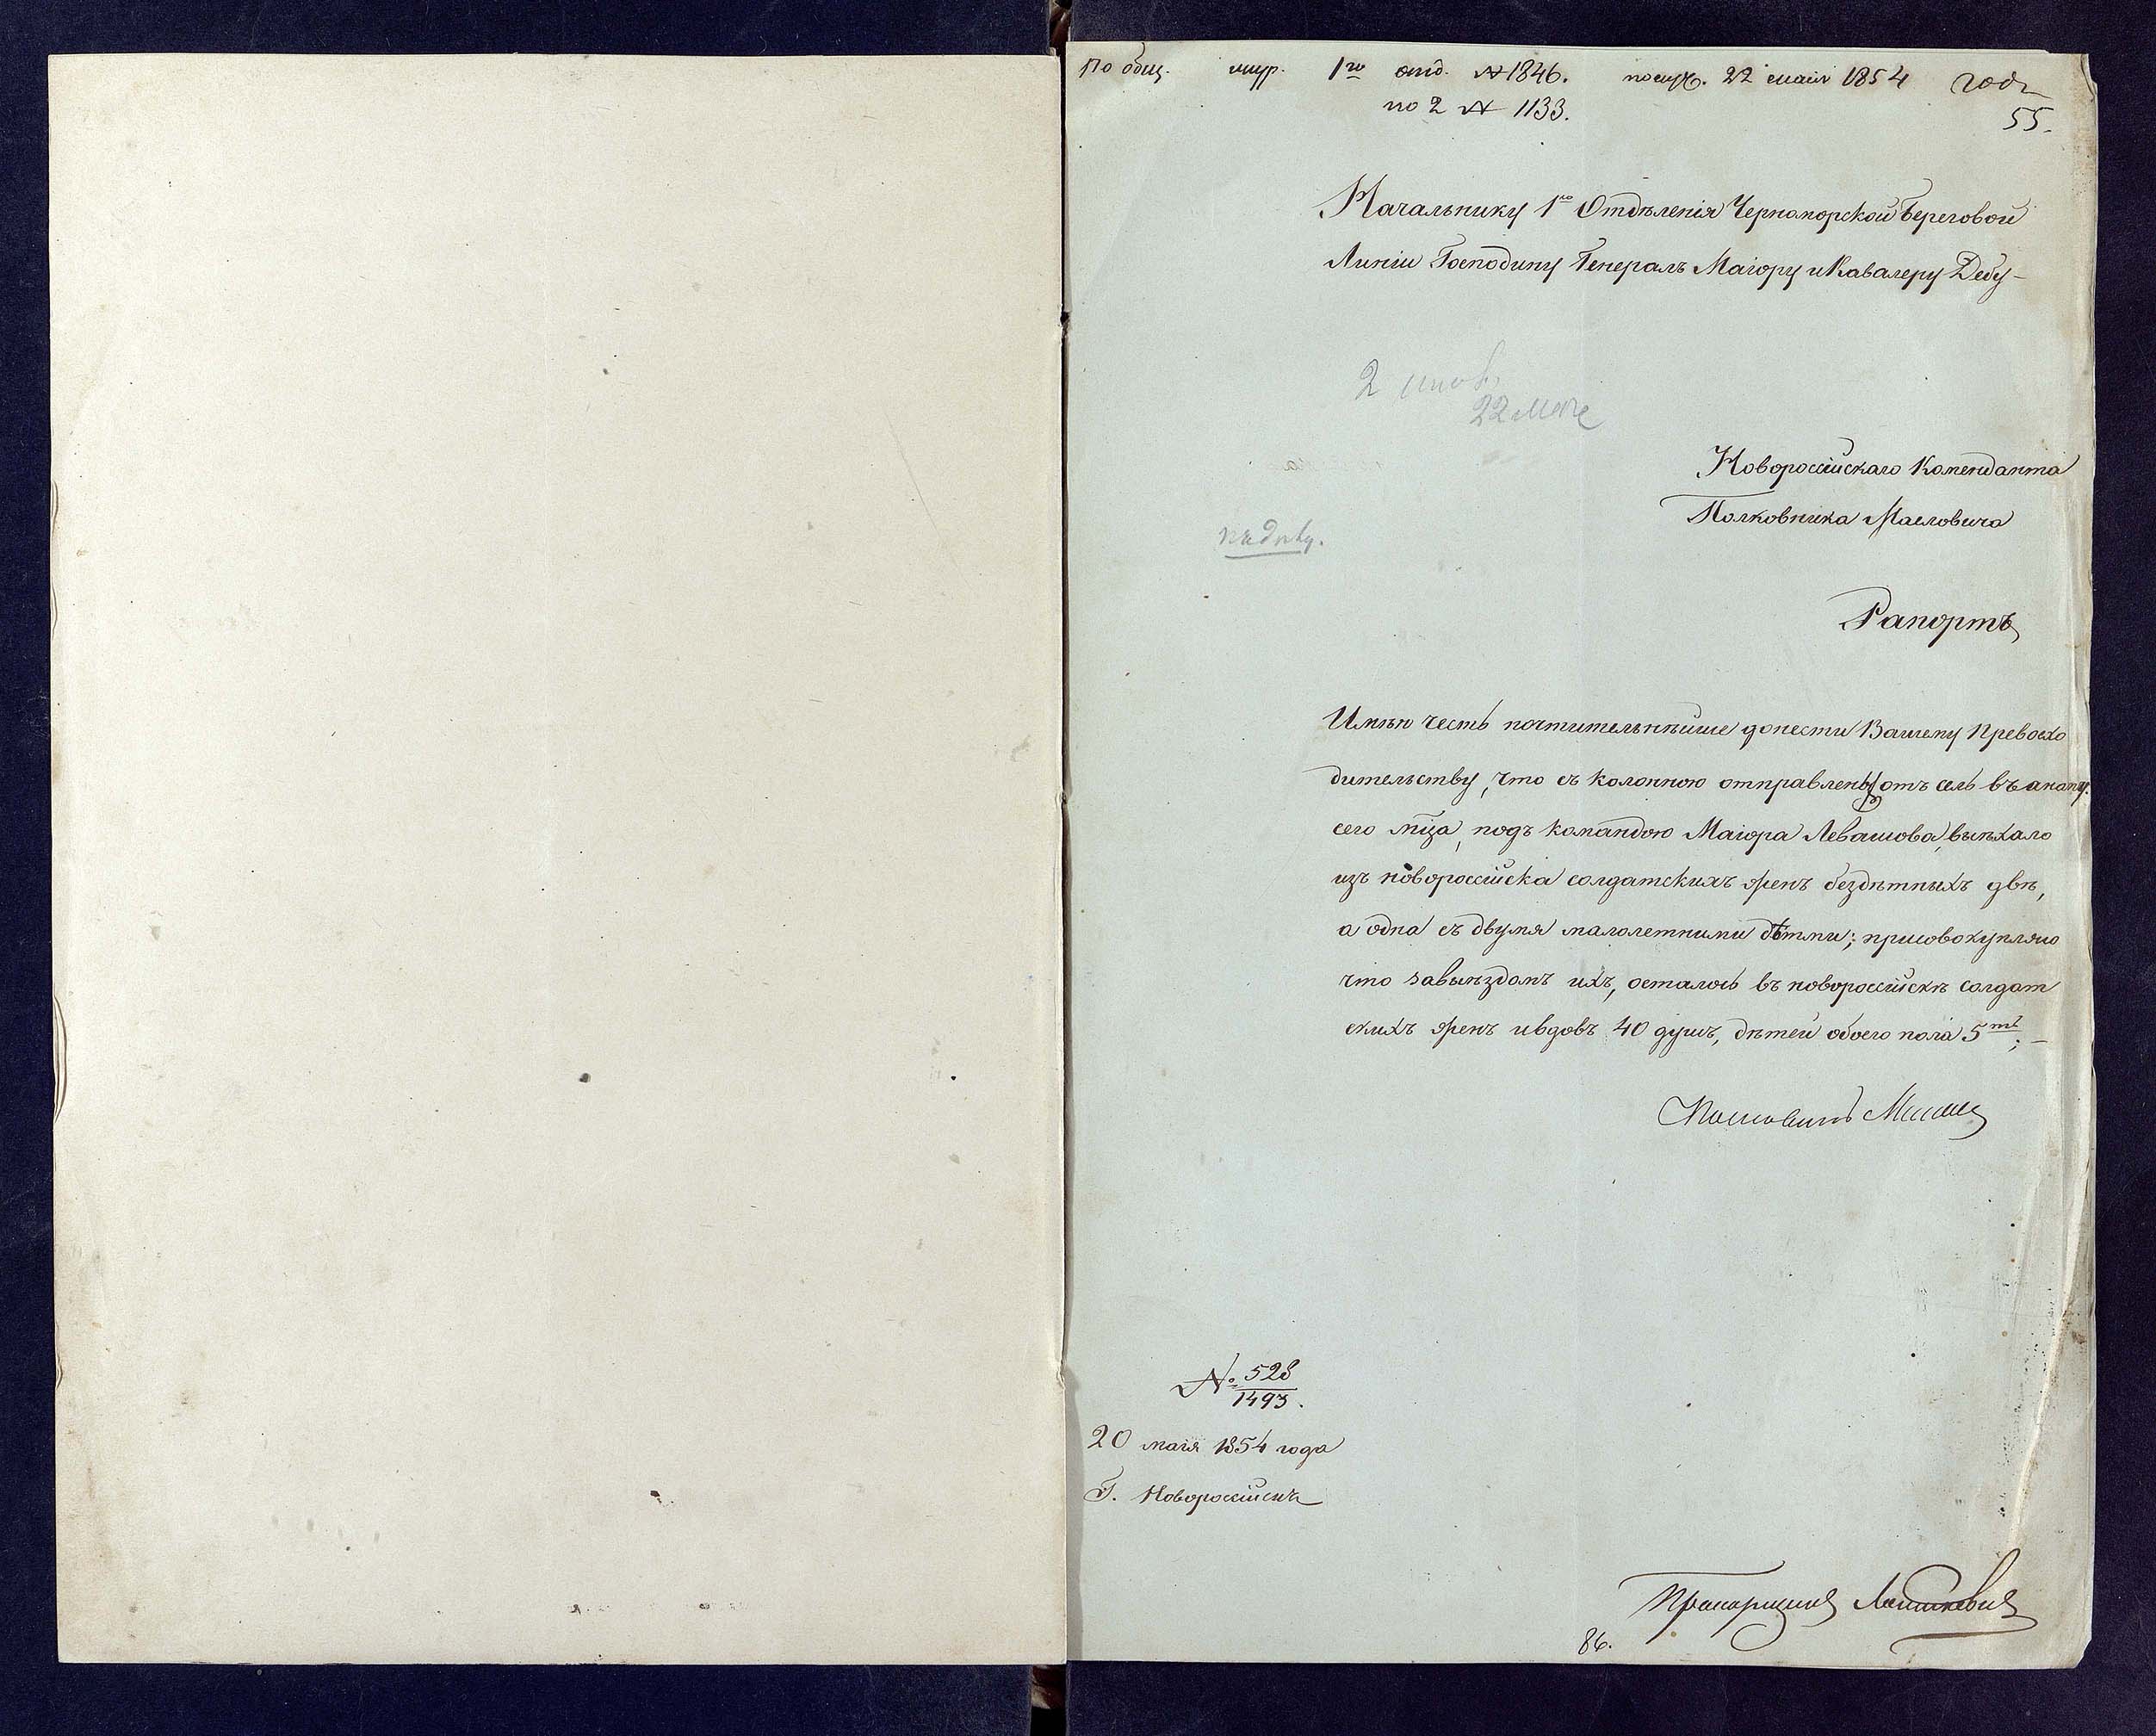 По общ. жур. 1го отд. № 1846. получ. 22 мая 1854 года
по 2 № 1133.
55.
Начальнику 1го Отдѣленія Черноморской Береговой
Линіи Господину Генералъ Маіору и Кавалеру Дебу-
2
22 мая
Новороссійскаго Коменданта
Полковника Масловича
къ дѣлу.
Рапортъ
Имѣю честь почтительнѣйше донести Вашему Превосхо
дительству, что съ колонною отправленной отъ сель въ анапу
сего мѣсца, подъ командою Маіора Левашова, выѣхало
изъ новороссійска солдатскихъ женъ бездѣтныхъ двѣ,
а одна съ двумя малолетними дѣтми; присовокупляю
что завыѣздомъ ихъ, осталось въ новороссійскѣ солдат
скихъ женъ ивдовъ 40 душъ, дѣтей обоего пола 5ть;-
Полковникъ
№ 528
1493.
20 мая 1854 года
Г. Новороссійскъ
Прапорщикъ
86.